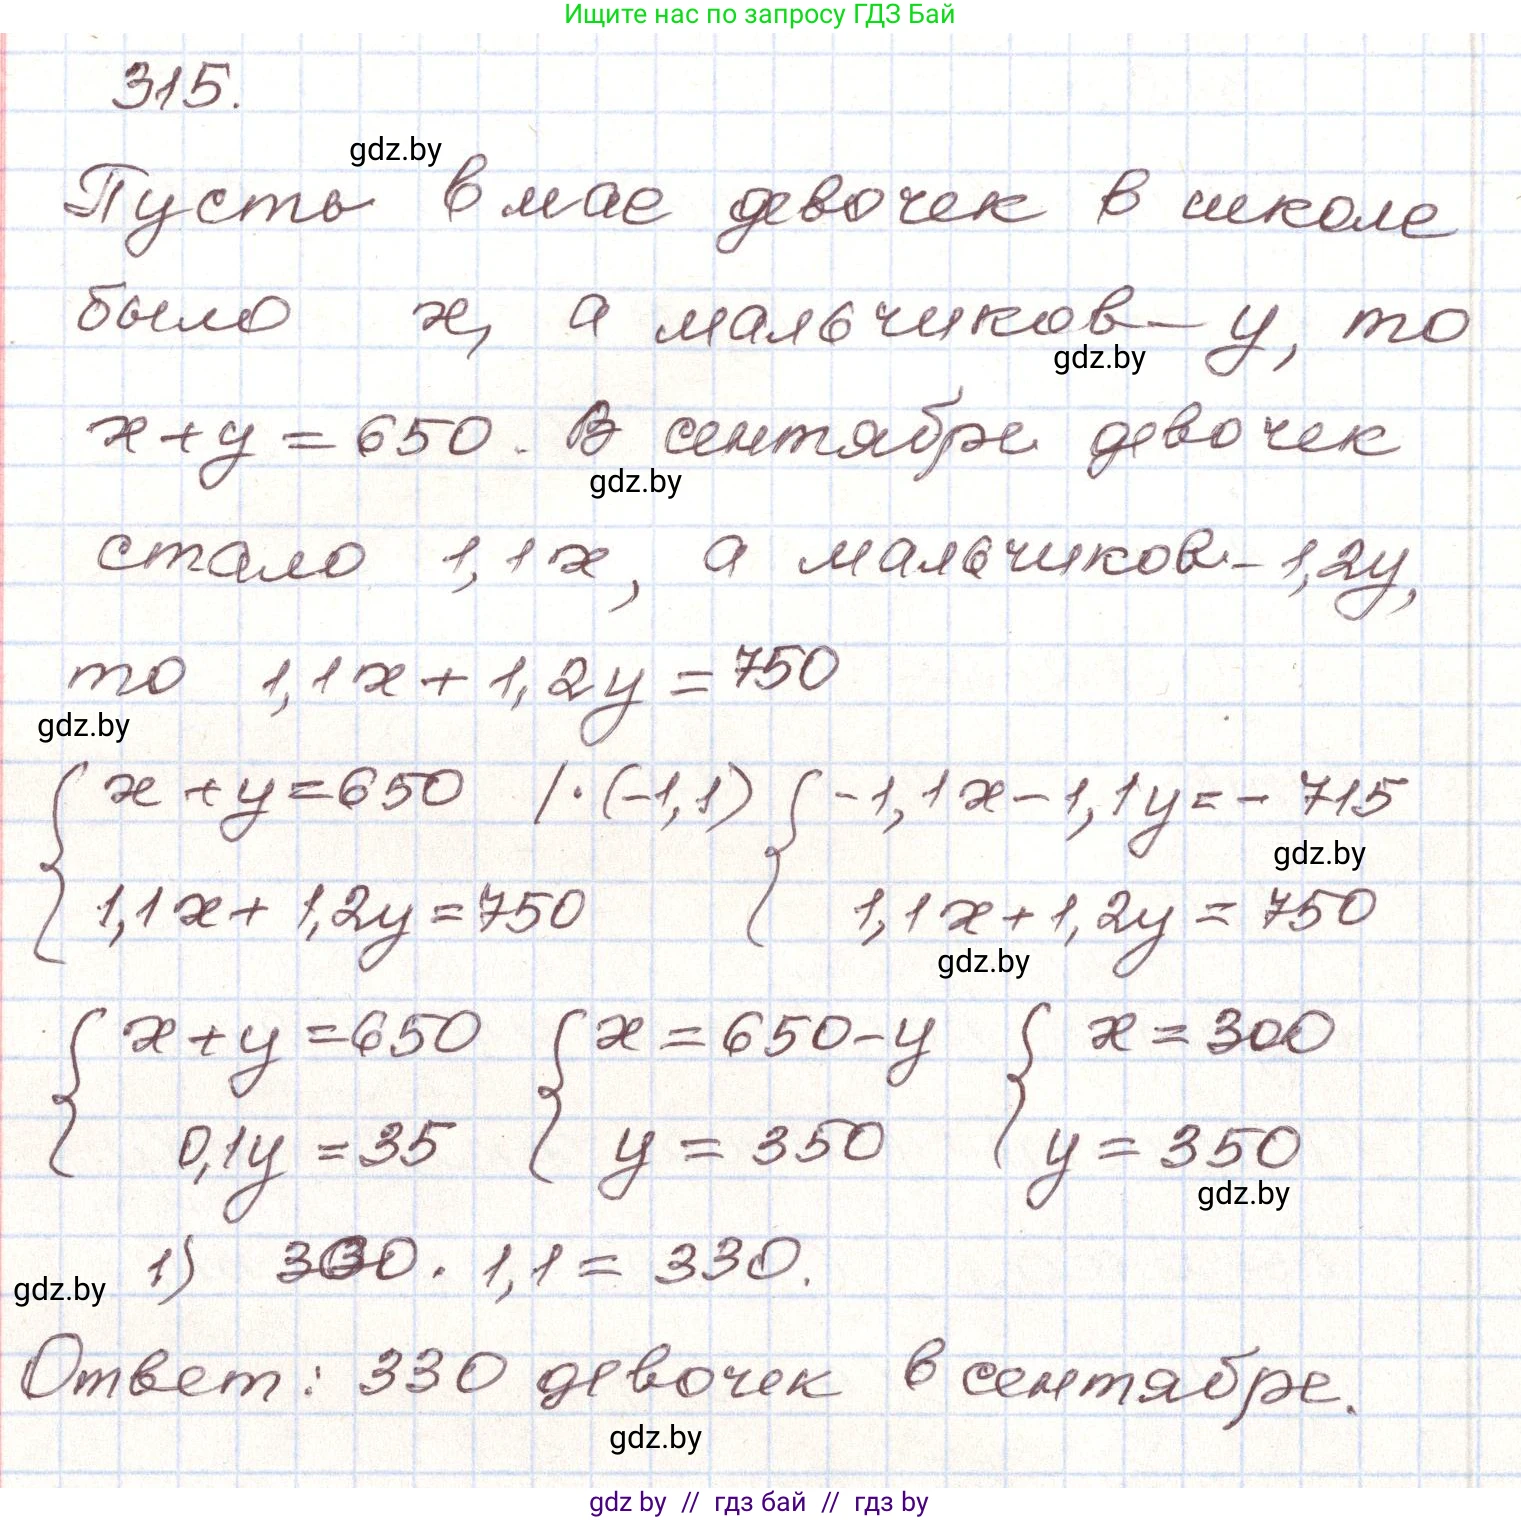 Ищите нас по запросу ГДЗ Бай
315.
gdz.by
Пусть в мае девочек в школе
было x, а мальчиков – y, то
gdz.by
x + y = 650. В сентябре девочек
gdz.by
стало 1,1x, а мальчиков – 1,2y,
то 1,1x + 1,2y = 750
gdz.by
{ x + y = 650 | · (-1,1) { -1,1x - 1,1y = - 715
gdz.by
1,1x + 1,2y = 750 1,1x + 1,2y = 750
gdz.by
{ x + y = 650 { x = 650 - y { x = 300
0,1y = 35 y = 350 y = 350
gdz.by
1) 300 · 1,1 = 330.
gdz.by
Ответ: 330 девочек в сентябре.
gdz.by
gdz by // гдз бай // гдз by